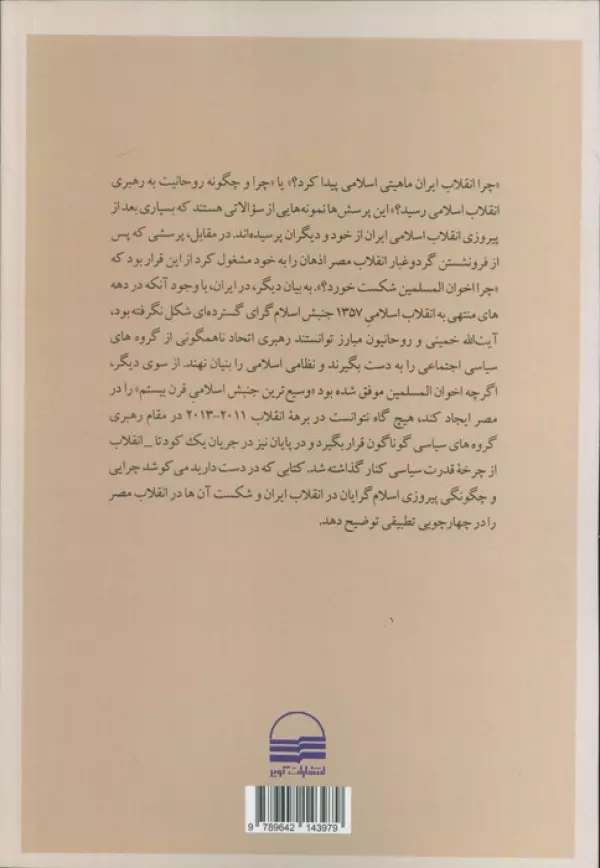 «چرا انقلاب ایران ماهیتی اسلامی پیدا کرد؟» یا «چرا و چگونه روحانیت به رهبری
انقلاب اسلامی رسید؟» این پرسش‌ها نمونه‌هایی از سؤالاتی هستند که بسیاری بعد از
پیروزی انقلاب اسلامی ایران از خود و دیگران پرسیده‌اند. در مقابل، پرسشی که پس
از فرونشستن گردوغبار انقلاب مصر اذهان را به خود مشغول کرد از این قرار بود که
«چرا اخوان المسلمین شکست خورد؟». به بیان دیگر، در ایران، با وجود آنکه در دهه
های منتهی به انقلاب اسلامیِ ۱۳۵۷ جنبش اسلام‌گرای گسترده‌ای شکل نگرفته بود،
آیت‌الله خمینی و روحانیون مبارز توانستند رهبری اتحاد ناهمگونی از گروه های
سیاسی اجتماعی را به دست بگیرند و نظامی اسلامی را بنیان نهند. از سوی دیگر،
اگرچه اخوان المسلمین موفق شده بود «وسیع‌ترین جنبش اسلامیِ قرن بیستم» را در
مصر ایجاد کند، هیچ گاه نتوانست در برههٔ انقلاب ۲۰۱۱-۲۰۱۳ در مقام رهبری
گروه های سیاسی گوناگون قرار بگیرد و در پایان نیز در جریان یک کودتا _ انقلاب
از چرخهٔ قدرت سیاسی کنار گذاشته شد. کتابی که در دست دارید می‌کوشد چرایی
و چگونگی پیروزی اسلام‌گرایان در انقلاب ایران و شکست آن ها در انقلاب مصر
را در چهارچوبی تطبیقی توضیح دهد.
انتشارات کویر
9 789642 143979